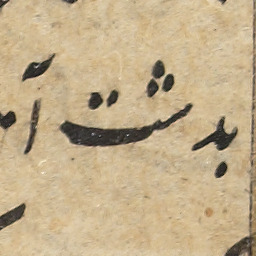 بدشت آ